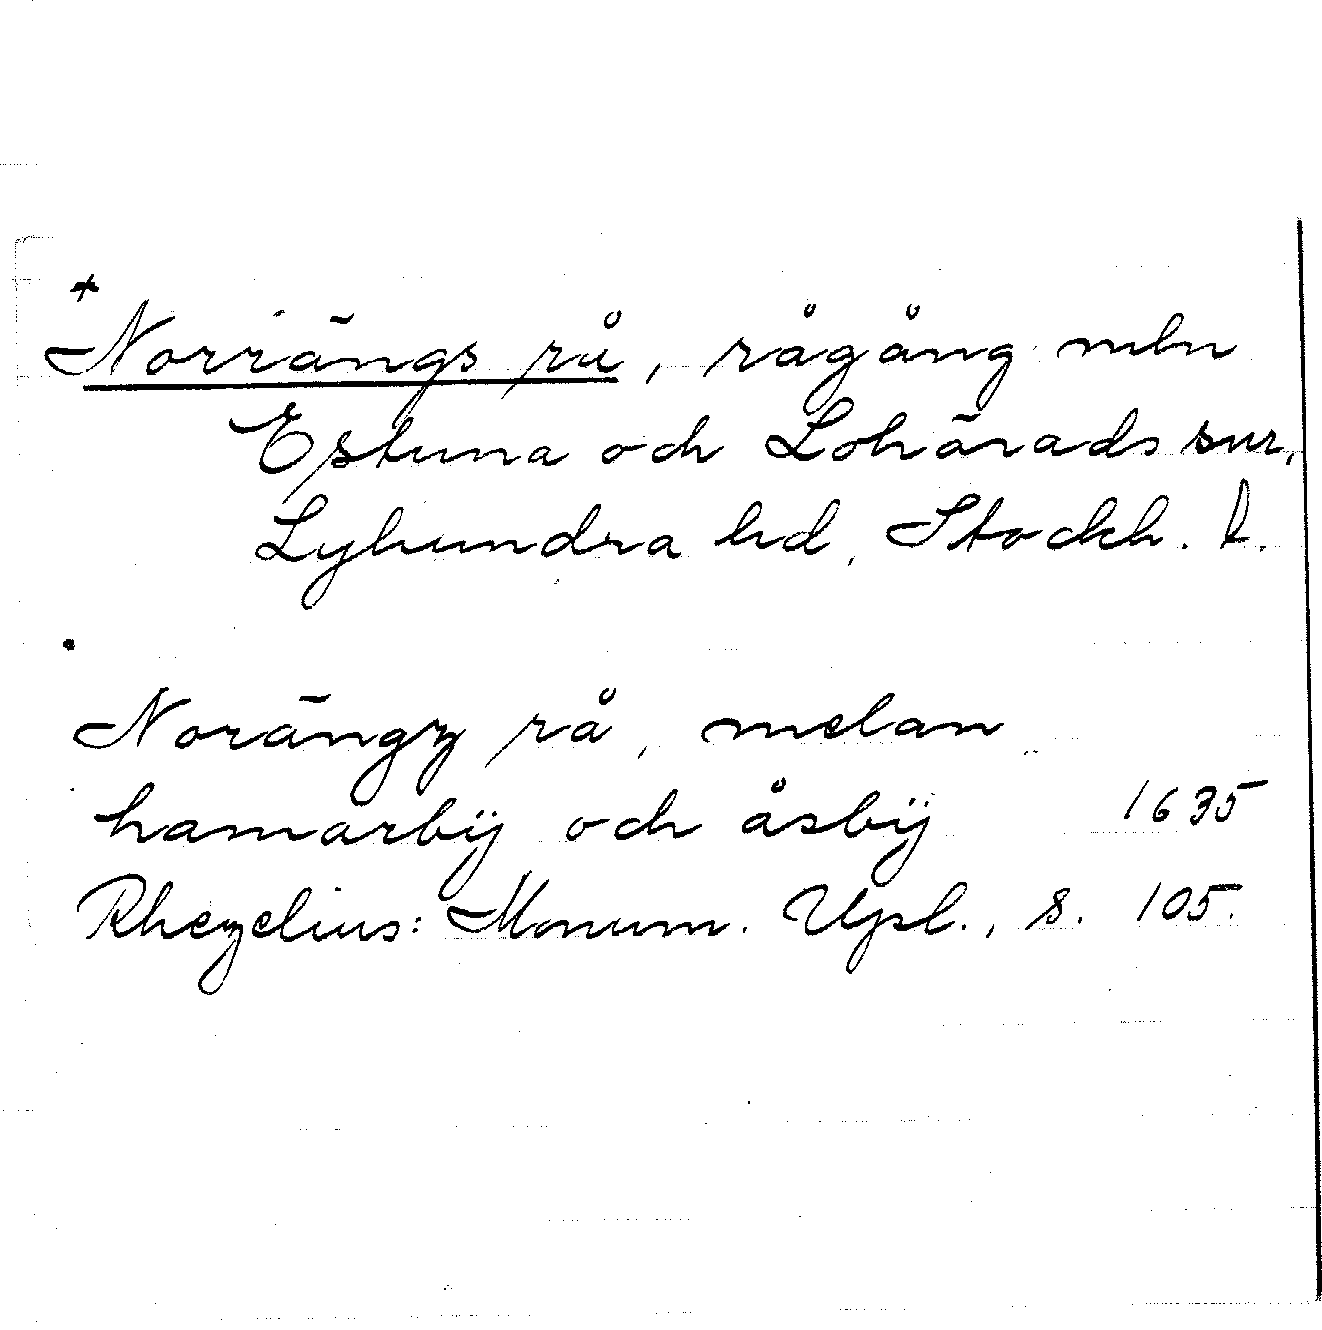 +
Norrängs rå, rågång mln
Estuna och Lohärads snr,
Lyhundra hd, Stockh. l.
Norängz rå, melan
hamarbÿ och åsbÿ 1635
Rhezelius: Monum. Upl., s. 105.